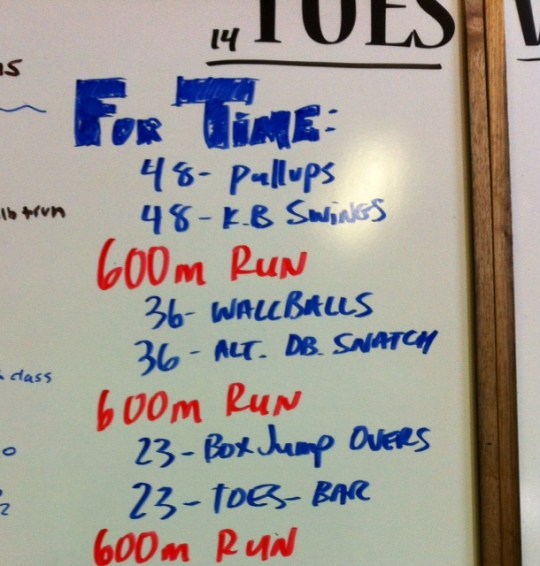 14 TUES
FOR TIME:
48- Pullups
48- K.B SWINGS
600m RUN
36- WALLBALLS
36- ALT. DB. SNATCH
600m RUN
23- Box Jump OVERS
23- TOES- BAR
600m RUN
class